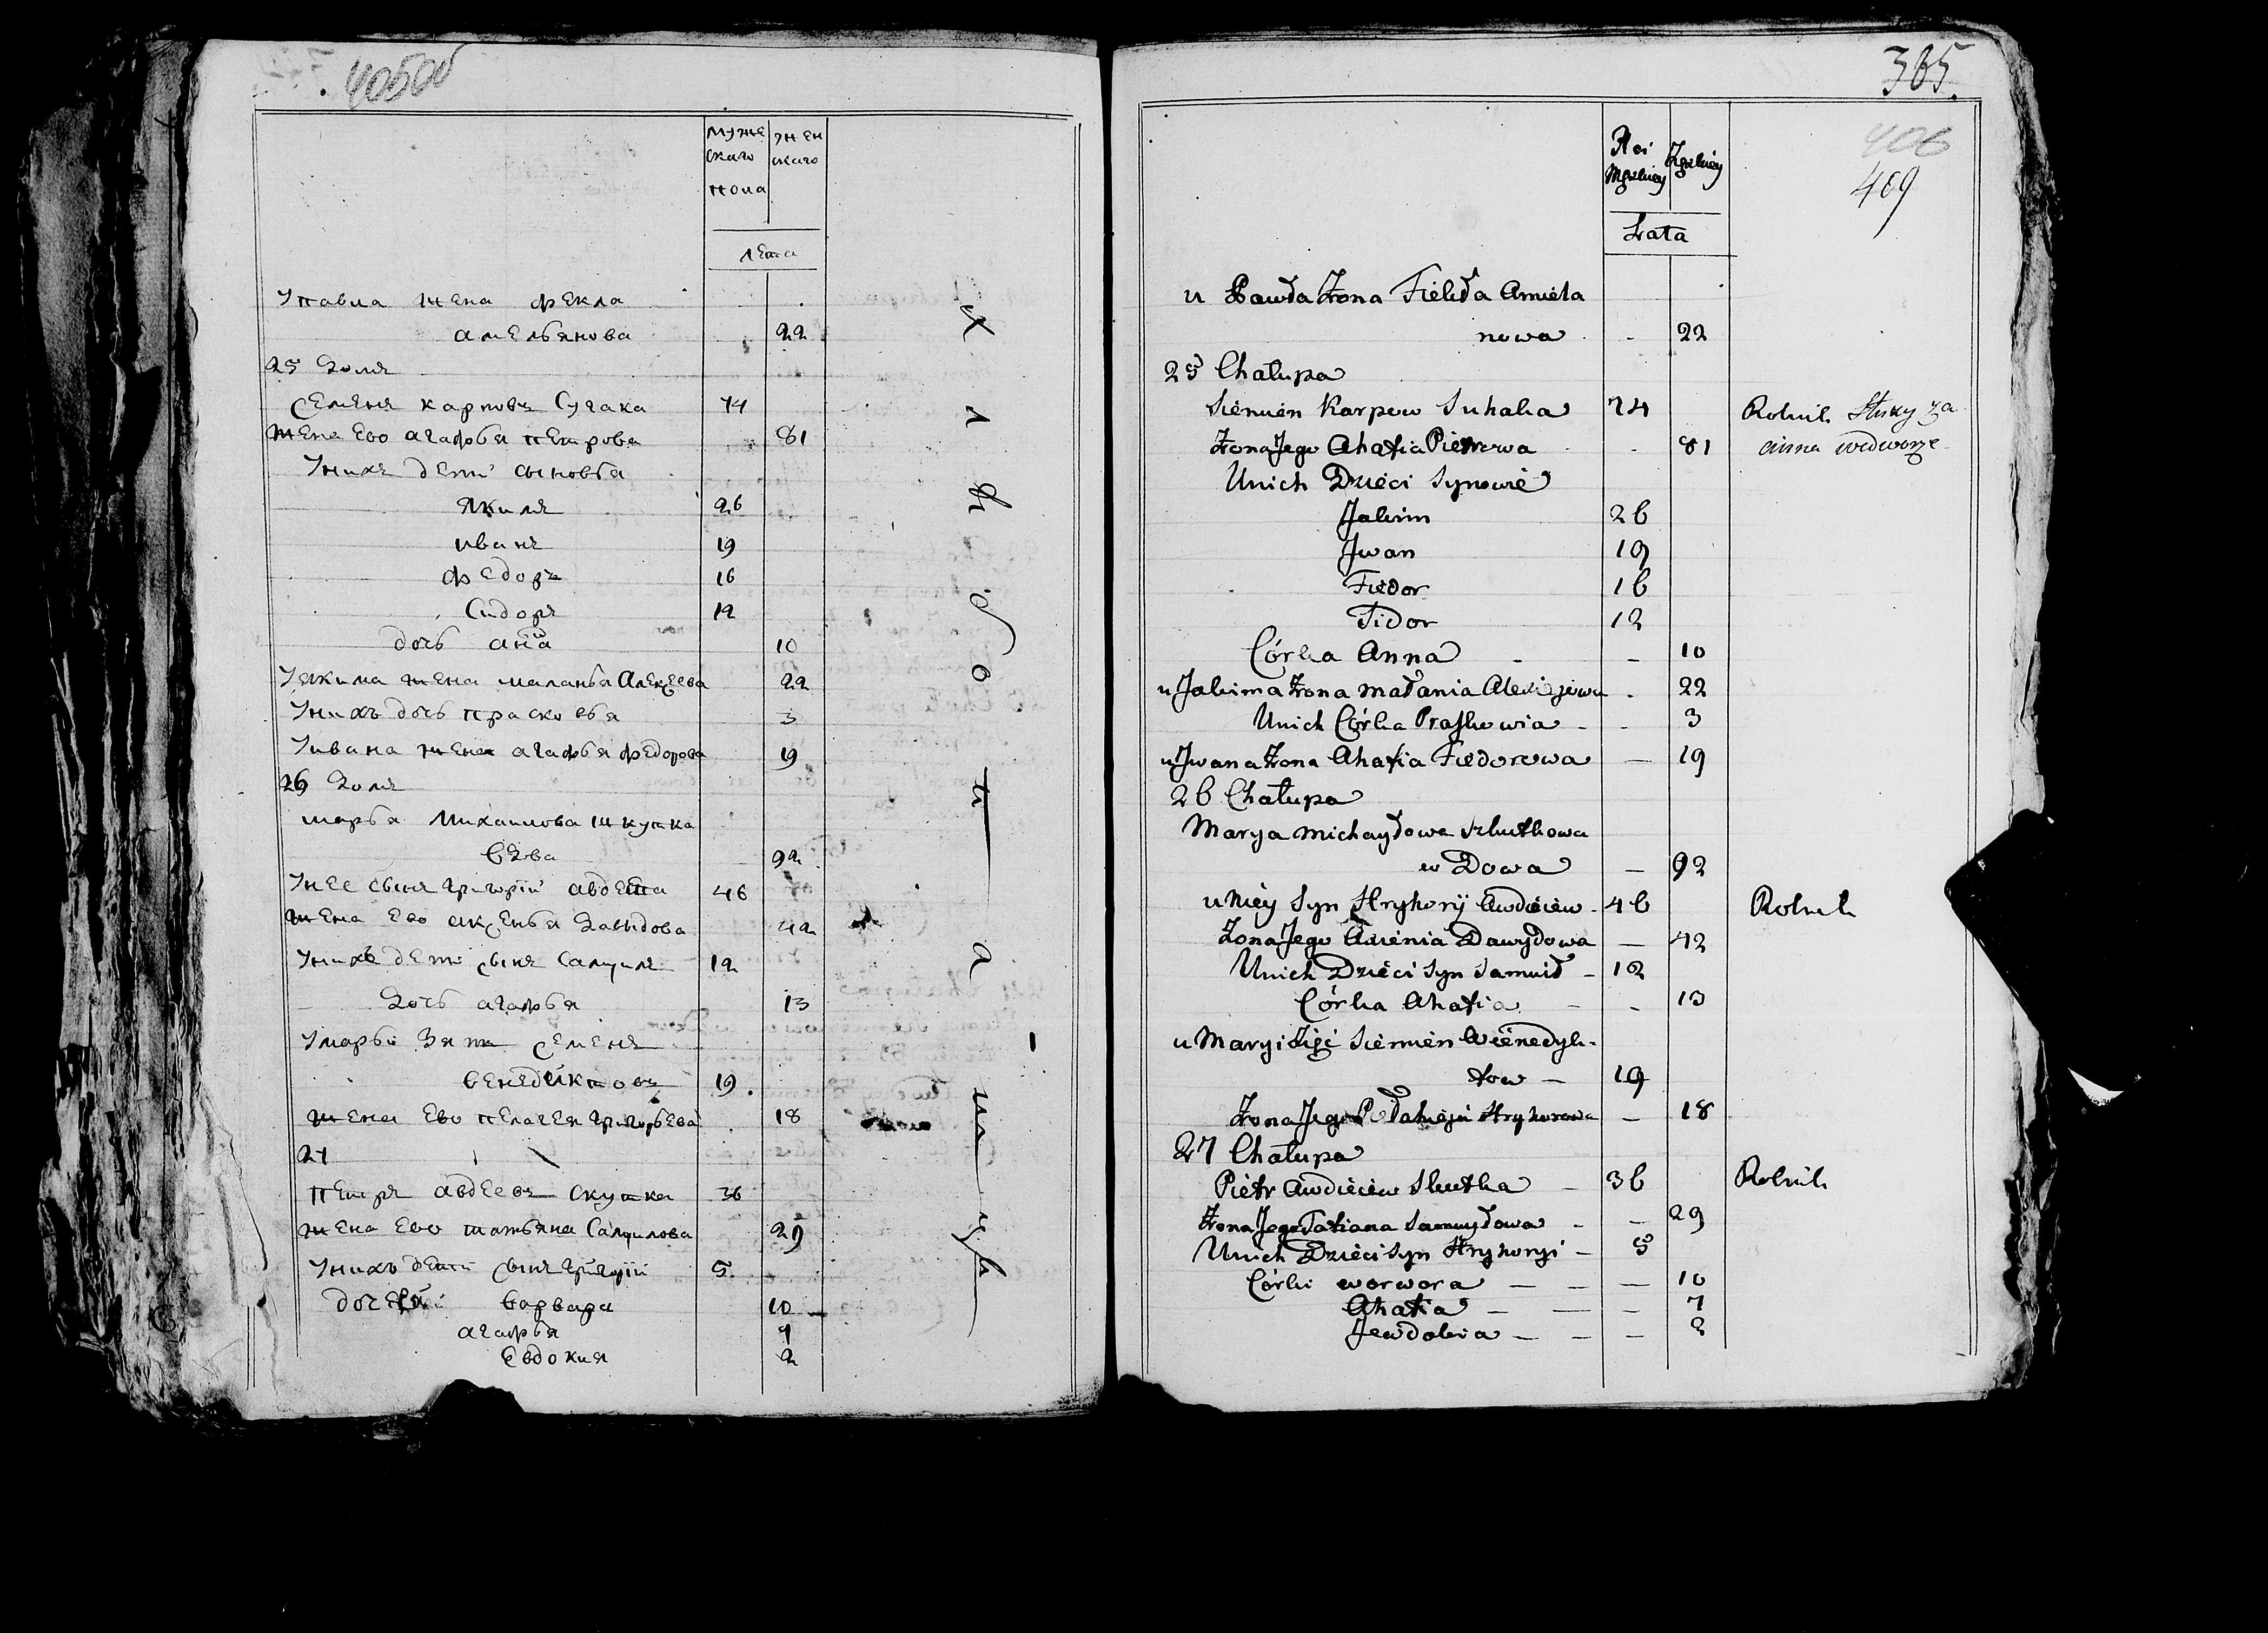 405об
муже
скаго
пола
жен
скаго
лета
Упавла жена фекла
амельянова 22
25 домъ
Семенъ карповъ Сугака 74
жена Ево агафья петрова 81
Унихъ дети сыновья
Якимъ 26
иванъ 19
федоръ 16
Сидоръ 12
дочь анна 10
Уякима жена маланья Алексеева 22
Унихъ дочь прасковья 3
Уивана жена агафья федорова 19
26 домъ
марья михаилова шкутка
вдова 92
Унее сынъ григорiй авдеева 46
жена Ево аксенья давидова 42
Унихъ дети сынъ самуилъ 12
дочь агафья 13
Умарьи зять семенъ
венедиктовъ 19
жена Ево пелагея григорьева 18
27
петръ авдеевъ скутка 36
жена Ево татьяна самуилова 29
Унихъ дети сынъ григорiй 5
дочери варвара 10
агафья 7
Евдокия 2
хлебопашцы
365.
406
409
Płci
Męzkiey
Żęzkiey
Lata
u Pawła Żona Fiekła Amiela
nowa - 22
25 Chałupa
Siemien Karpow Suhaka 74 Rolnik Służy za
Żona Jego Ahafia Pietrowa - 81
Unich Dzieci Synowie
Jakim 26
Jwan 19
Fiedor 16
Sidor 12
Córka Anna - - 10
u Jakima Żona Małania Alexiejewa - 22
Unich Córka Praskowia - - 3
u Jwana Żona Ahafia Fiedorowa — 19
26 Chałupa
Marya Michayłowa Szkutkowa
wDowa — 92
u Niey Syn Hryhorÿ Awdieiew - 46 Rolnik
Żona Jego Axienia Dawydowa — 42
Unich Dzieci Syn Samuił - 12
Córka Ahafia - - 13
u Maryi Zięć Siemien Wienedyk-
tow - 19
Żona Jego Pełahieja Hryhorowa — 18
27 Chałupa
Pietr Awdieiew Skutka - 36 Rolnik
Żona Jego Tatiana Samuyłowa - — 29
Unich Dzieci Syn Hryhoryi - 5
Córki worwora — — — 10
Ahafia — — — 7
Jewdokia — — — 2